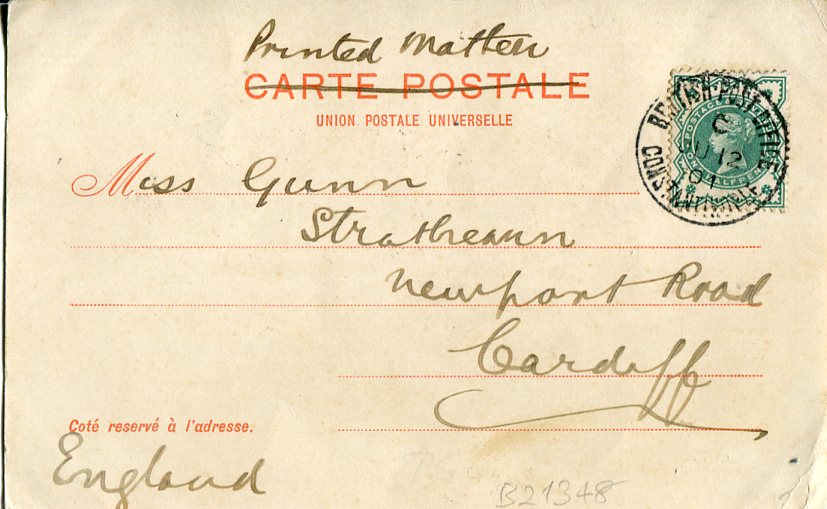 Printed Matter
CARTE POSTALE
UNION POSTALE UNIVERSELLE
BRITISH POST OFFICE
C
JU 12
CONSTANTINOPLE
POSTAGE & REVENUE
ONE HALFPENNY
Miss Gunn
Newport Road
Cardiff
Coté reservé à l'adresse.
England
B21348